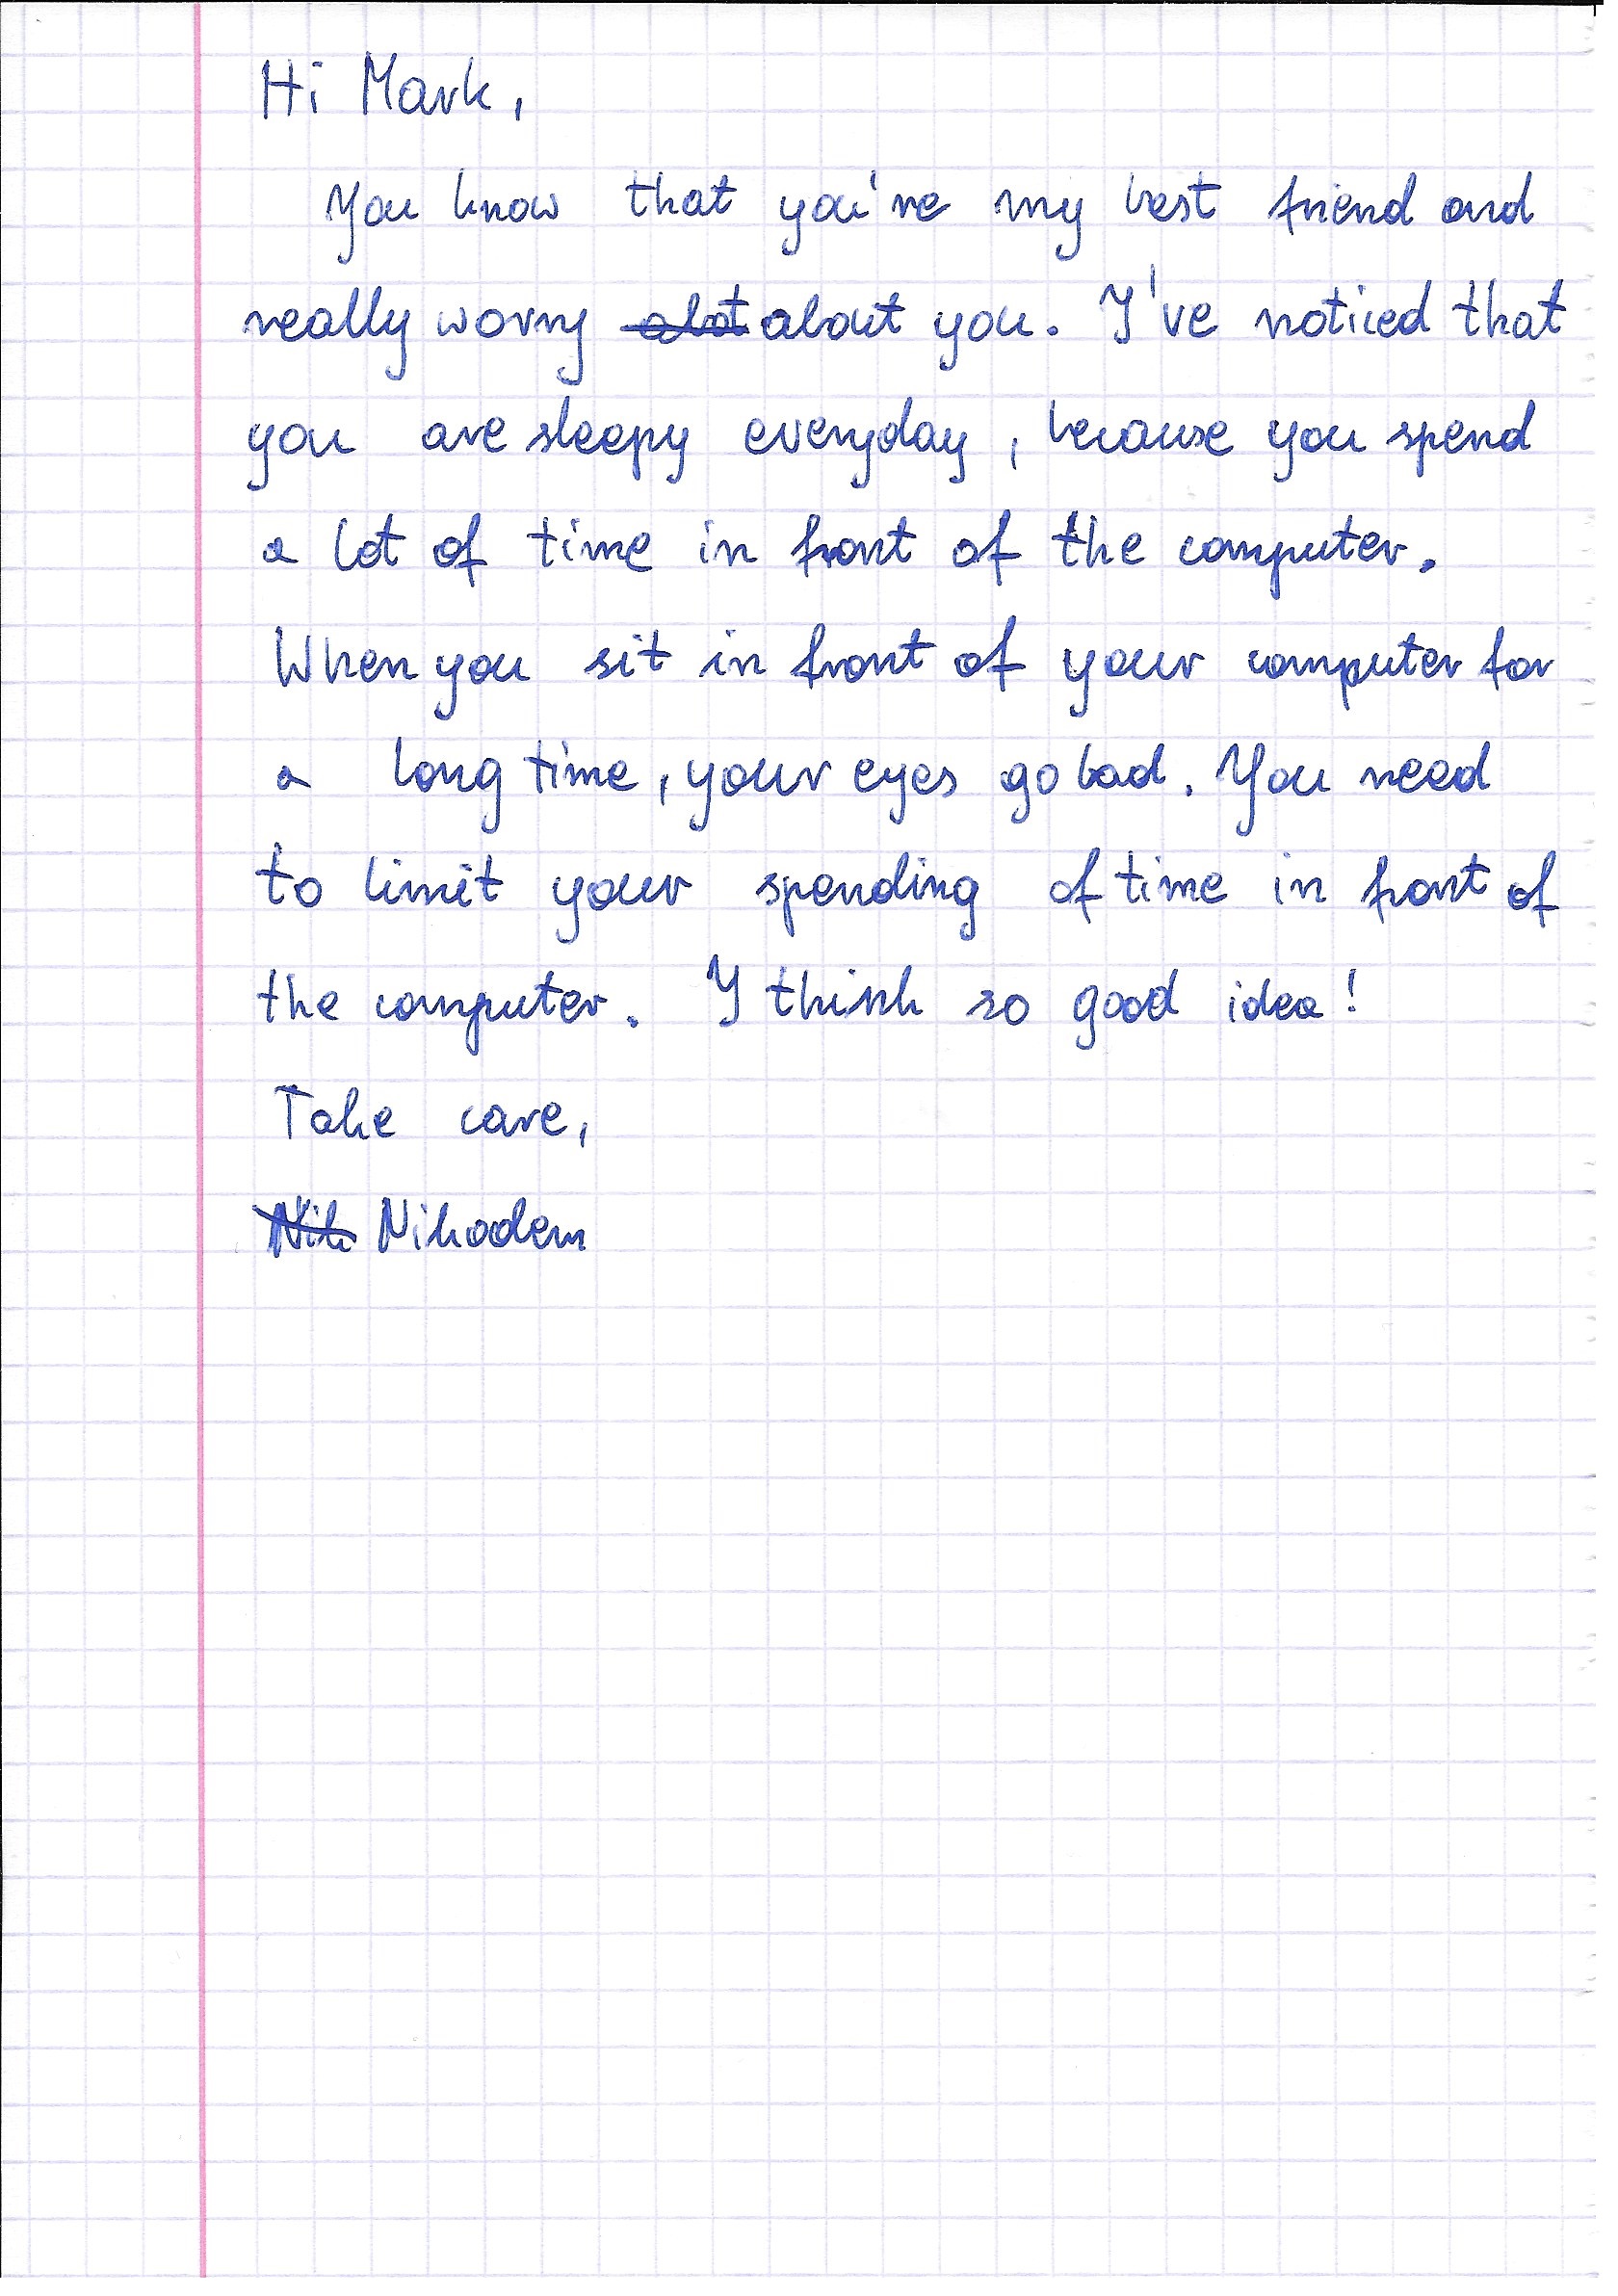 Hi Mark,
You know that you're my best friend and
really worry alot about you. I've noticed that
you are sleepy everyday, because you spend
a lot of time in front of the computer.
When you sit in front of your computer for
a long time, your eyes go bad. You need
to limit your spending of time in front of
the computer. I think so good idea!
Take care,
Nik Nikodem